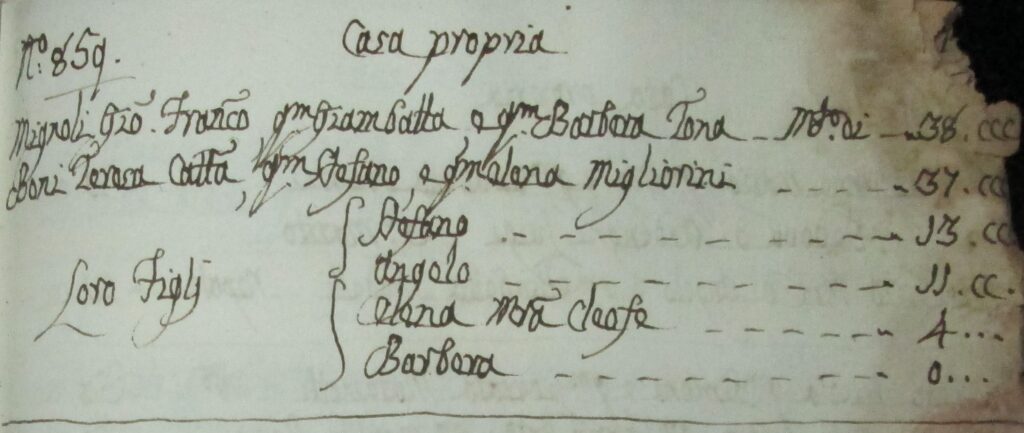 N.º 859.
Casa propria
Mignoli Gio. Franc̃o qm Giambatta e qm Barbera Tona Mto. di 38. ccc
Boni Teresa Cattã, qm Stefano, e qm Elena Migliorini 37. cc
Stefano 13. cc
Loro Figlj
Angolo 11. cc.
Elena Mrã Cleofe 4...
Barbera 0...